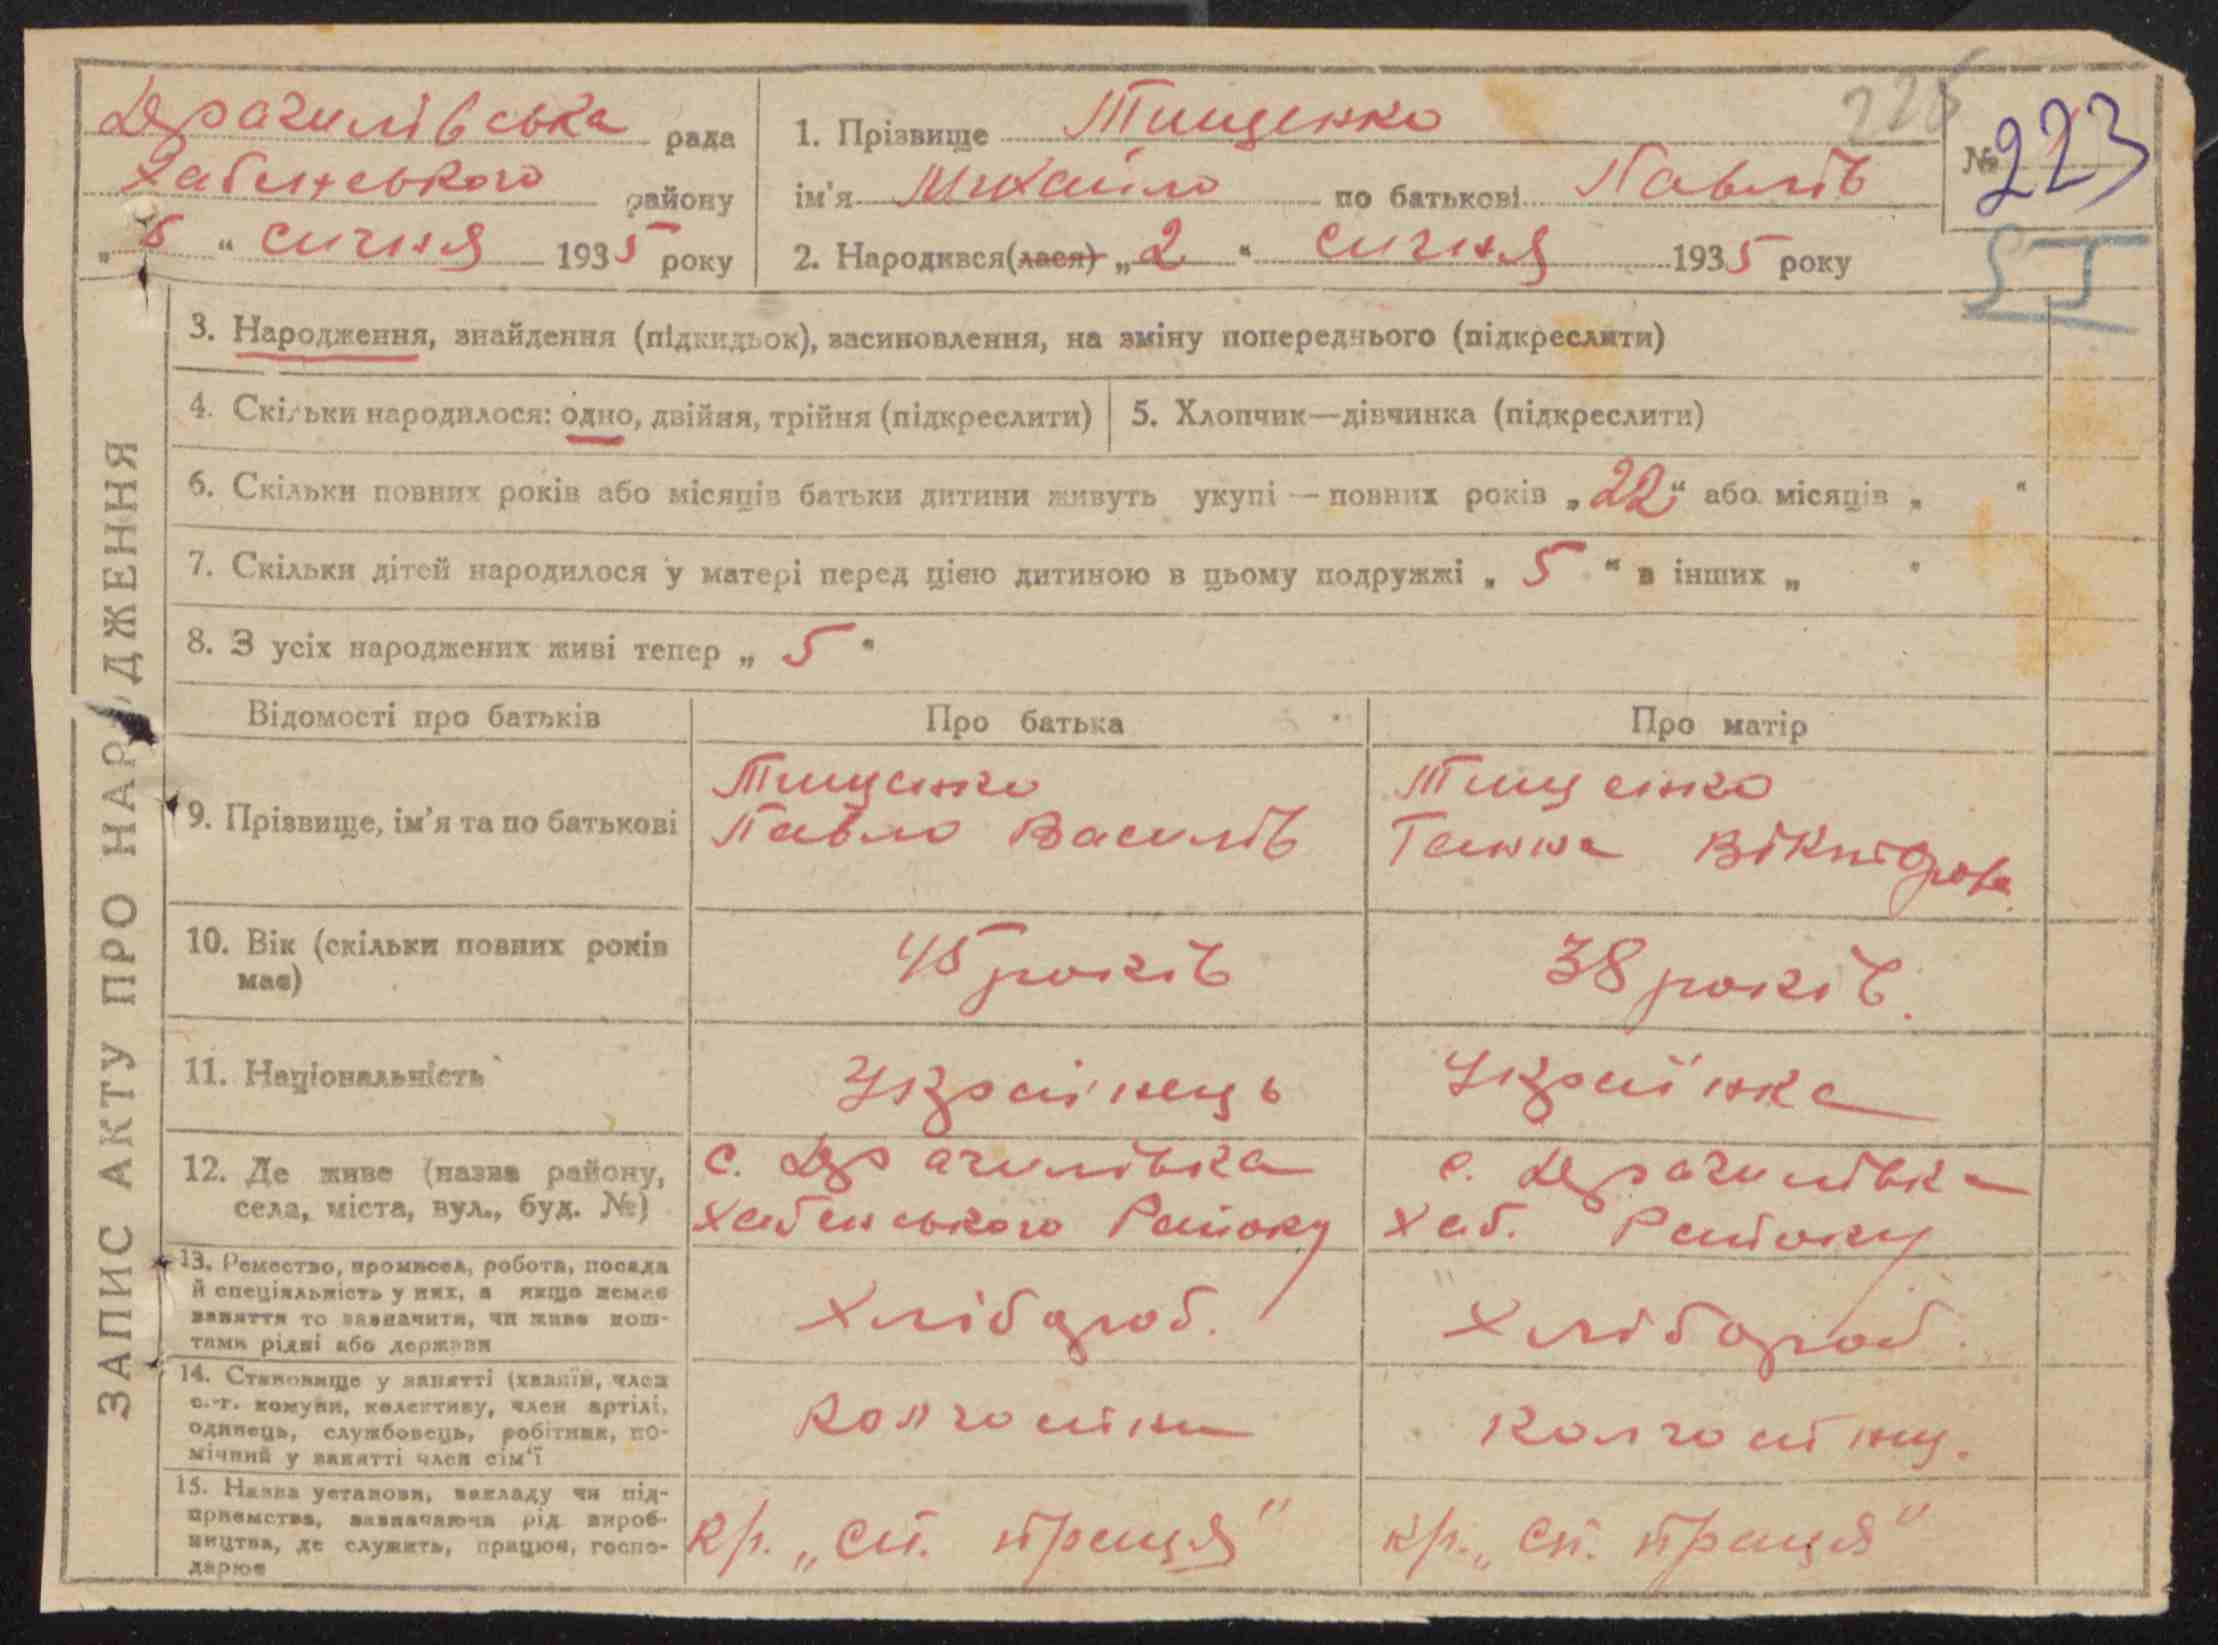 Драгилівська рада
Хабенського району
„ 6 “ січня 1935 року
1. Прізвище Тищенко
ім'я Михайло по батькові Павлів
2. Народився(лася) „ 2 “ січня 1935 року
№ 223
ЗАПИС АКТУ ПРО НАРОДЖЕННЯ
3. Народження, знайдення (підкидьок), засиновлення, на зміну попереднього (підкреслити)
4. Скільки народилося: одно, двійня, трійня (підкреслити)
5. Хлопчик—дівчинка (підкреслити)
6. Скільки повних років або місяців батьки дитини живуть укупі — повних років „22“ або місяців „ “
7. Скільки дітей народилося у матері перед цією дитиною в цьому подружжі „ 5 “ в інших „ “
8. З усіх народжених живі тепер „ 5 “
Відомості про батьків Про батька Про матір
9. Прізвище, ім'я та по батькові
Тищенко
Павло Василів
Тищенко
Ганна Вікторова
10. Вік (скільки повних років
має)
45 років
38 років.
11. Національність
Українець
Українка
12. Де живе (назва району,
села, міста, вул., буд. №)
с. Драгилівка
Хабенського Району
с. Драгилівка
Хаб. Району
13. Ремество, промисел, робота, посада
й спеціяльність у них, а якщо немає
заняття то зазначити, чи живе кош-
тами рідні або держави
Хлібороб.
Хлібороб.
14. Становище у занятті (хазяїн, член
с.-г. комуни, колективу, член артілі,
одинець, службовець, робітник, по-
мічний у занятті член сім'ї
Колгоспник
Колгоспниц.
15. Назва установи, закладу чи під-
приємства, зазначаючи рід вироб-
ництва, де служить, працює, госпо-
дарює
кр. „Сп. праця"
кр. „Сп. праця"